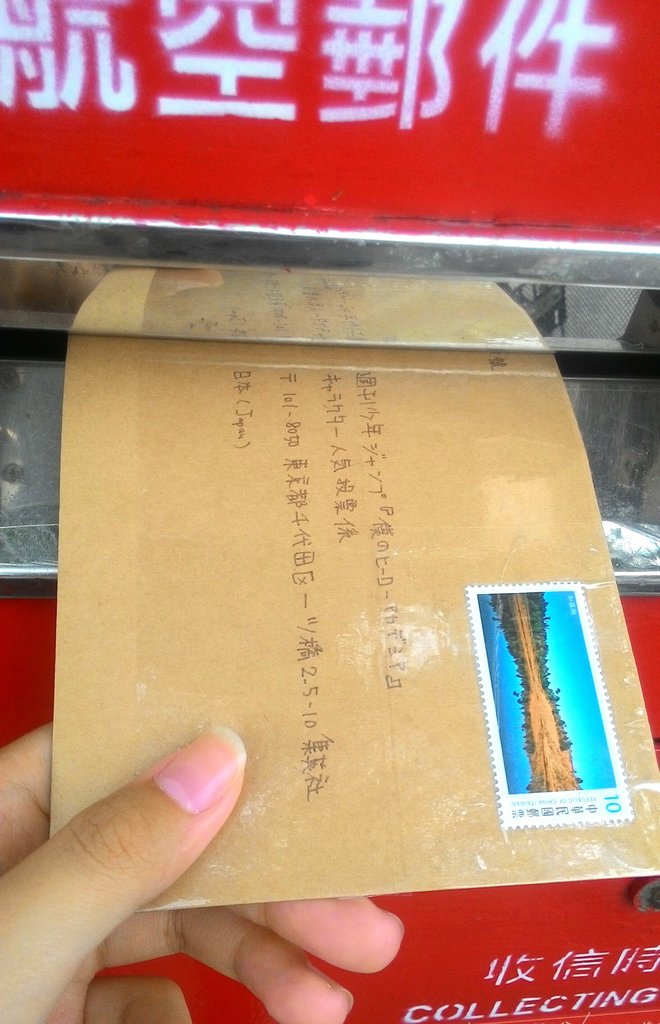 航空郵件
號
週刊少年ジャンプ『僕のヒーローアカデミア』
キャラクター人気投票係
〒101-8050 東京都千代田区一ツ橋2-5-10 集英社
日本(Japan)
10
REPUBLIC OF CHINA (TAIWAN)
中華民國郵票
收信時
COLLECTING